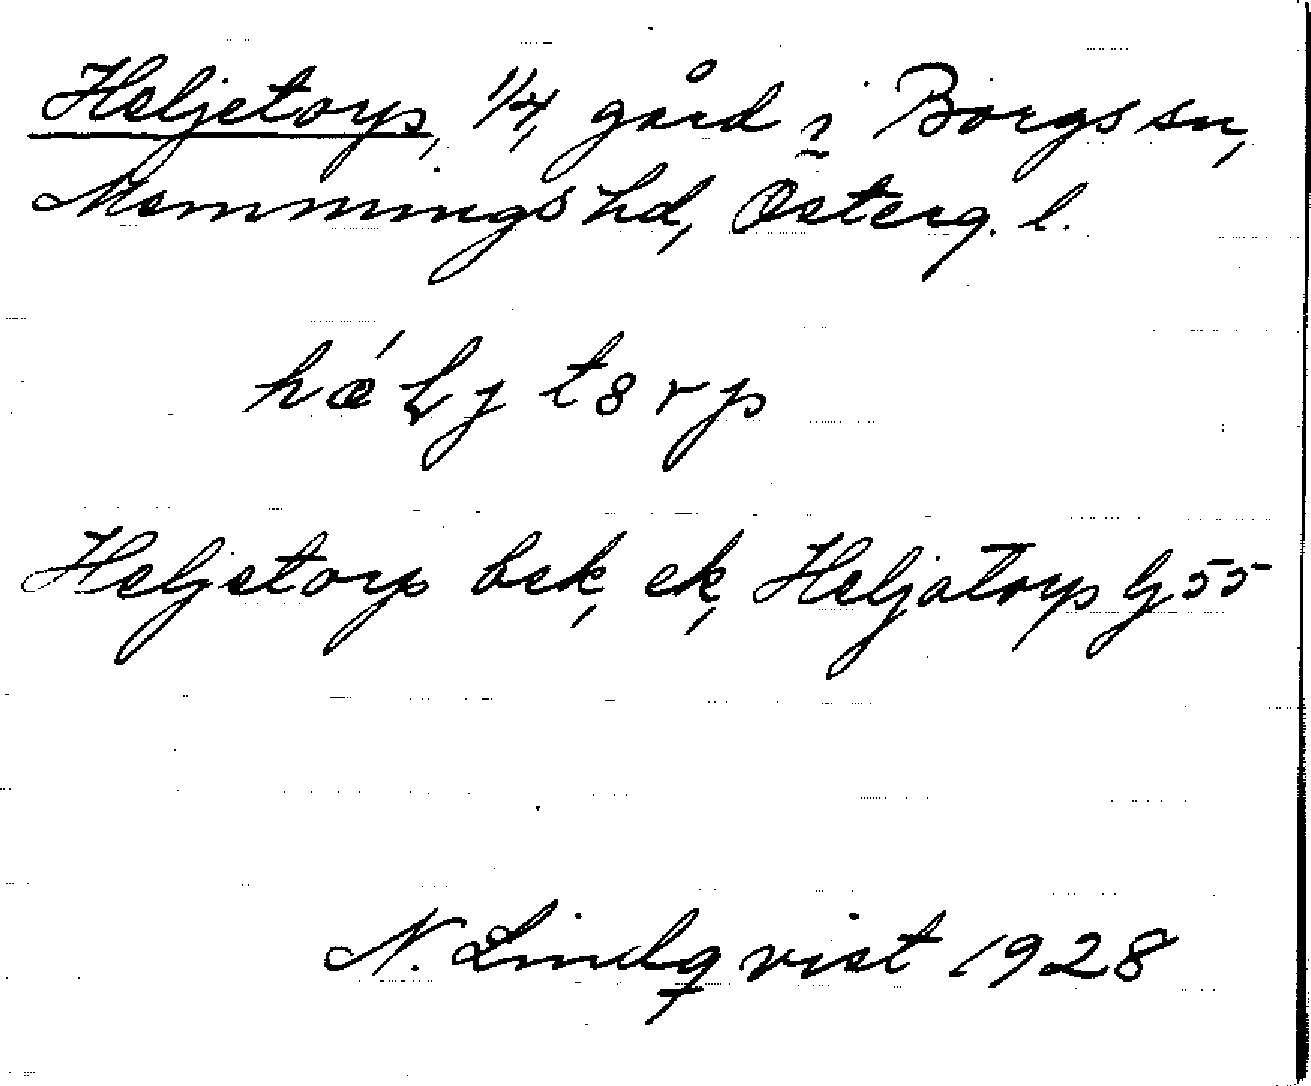 Heljetorp, 1/4, gård i Borgs sn,
Memmings hd, Österg. l.
hæ´ļj tɞrp
Heljetorp bek, ek, Heljatorp Gj 55
N. Lindqvist 1928